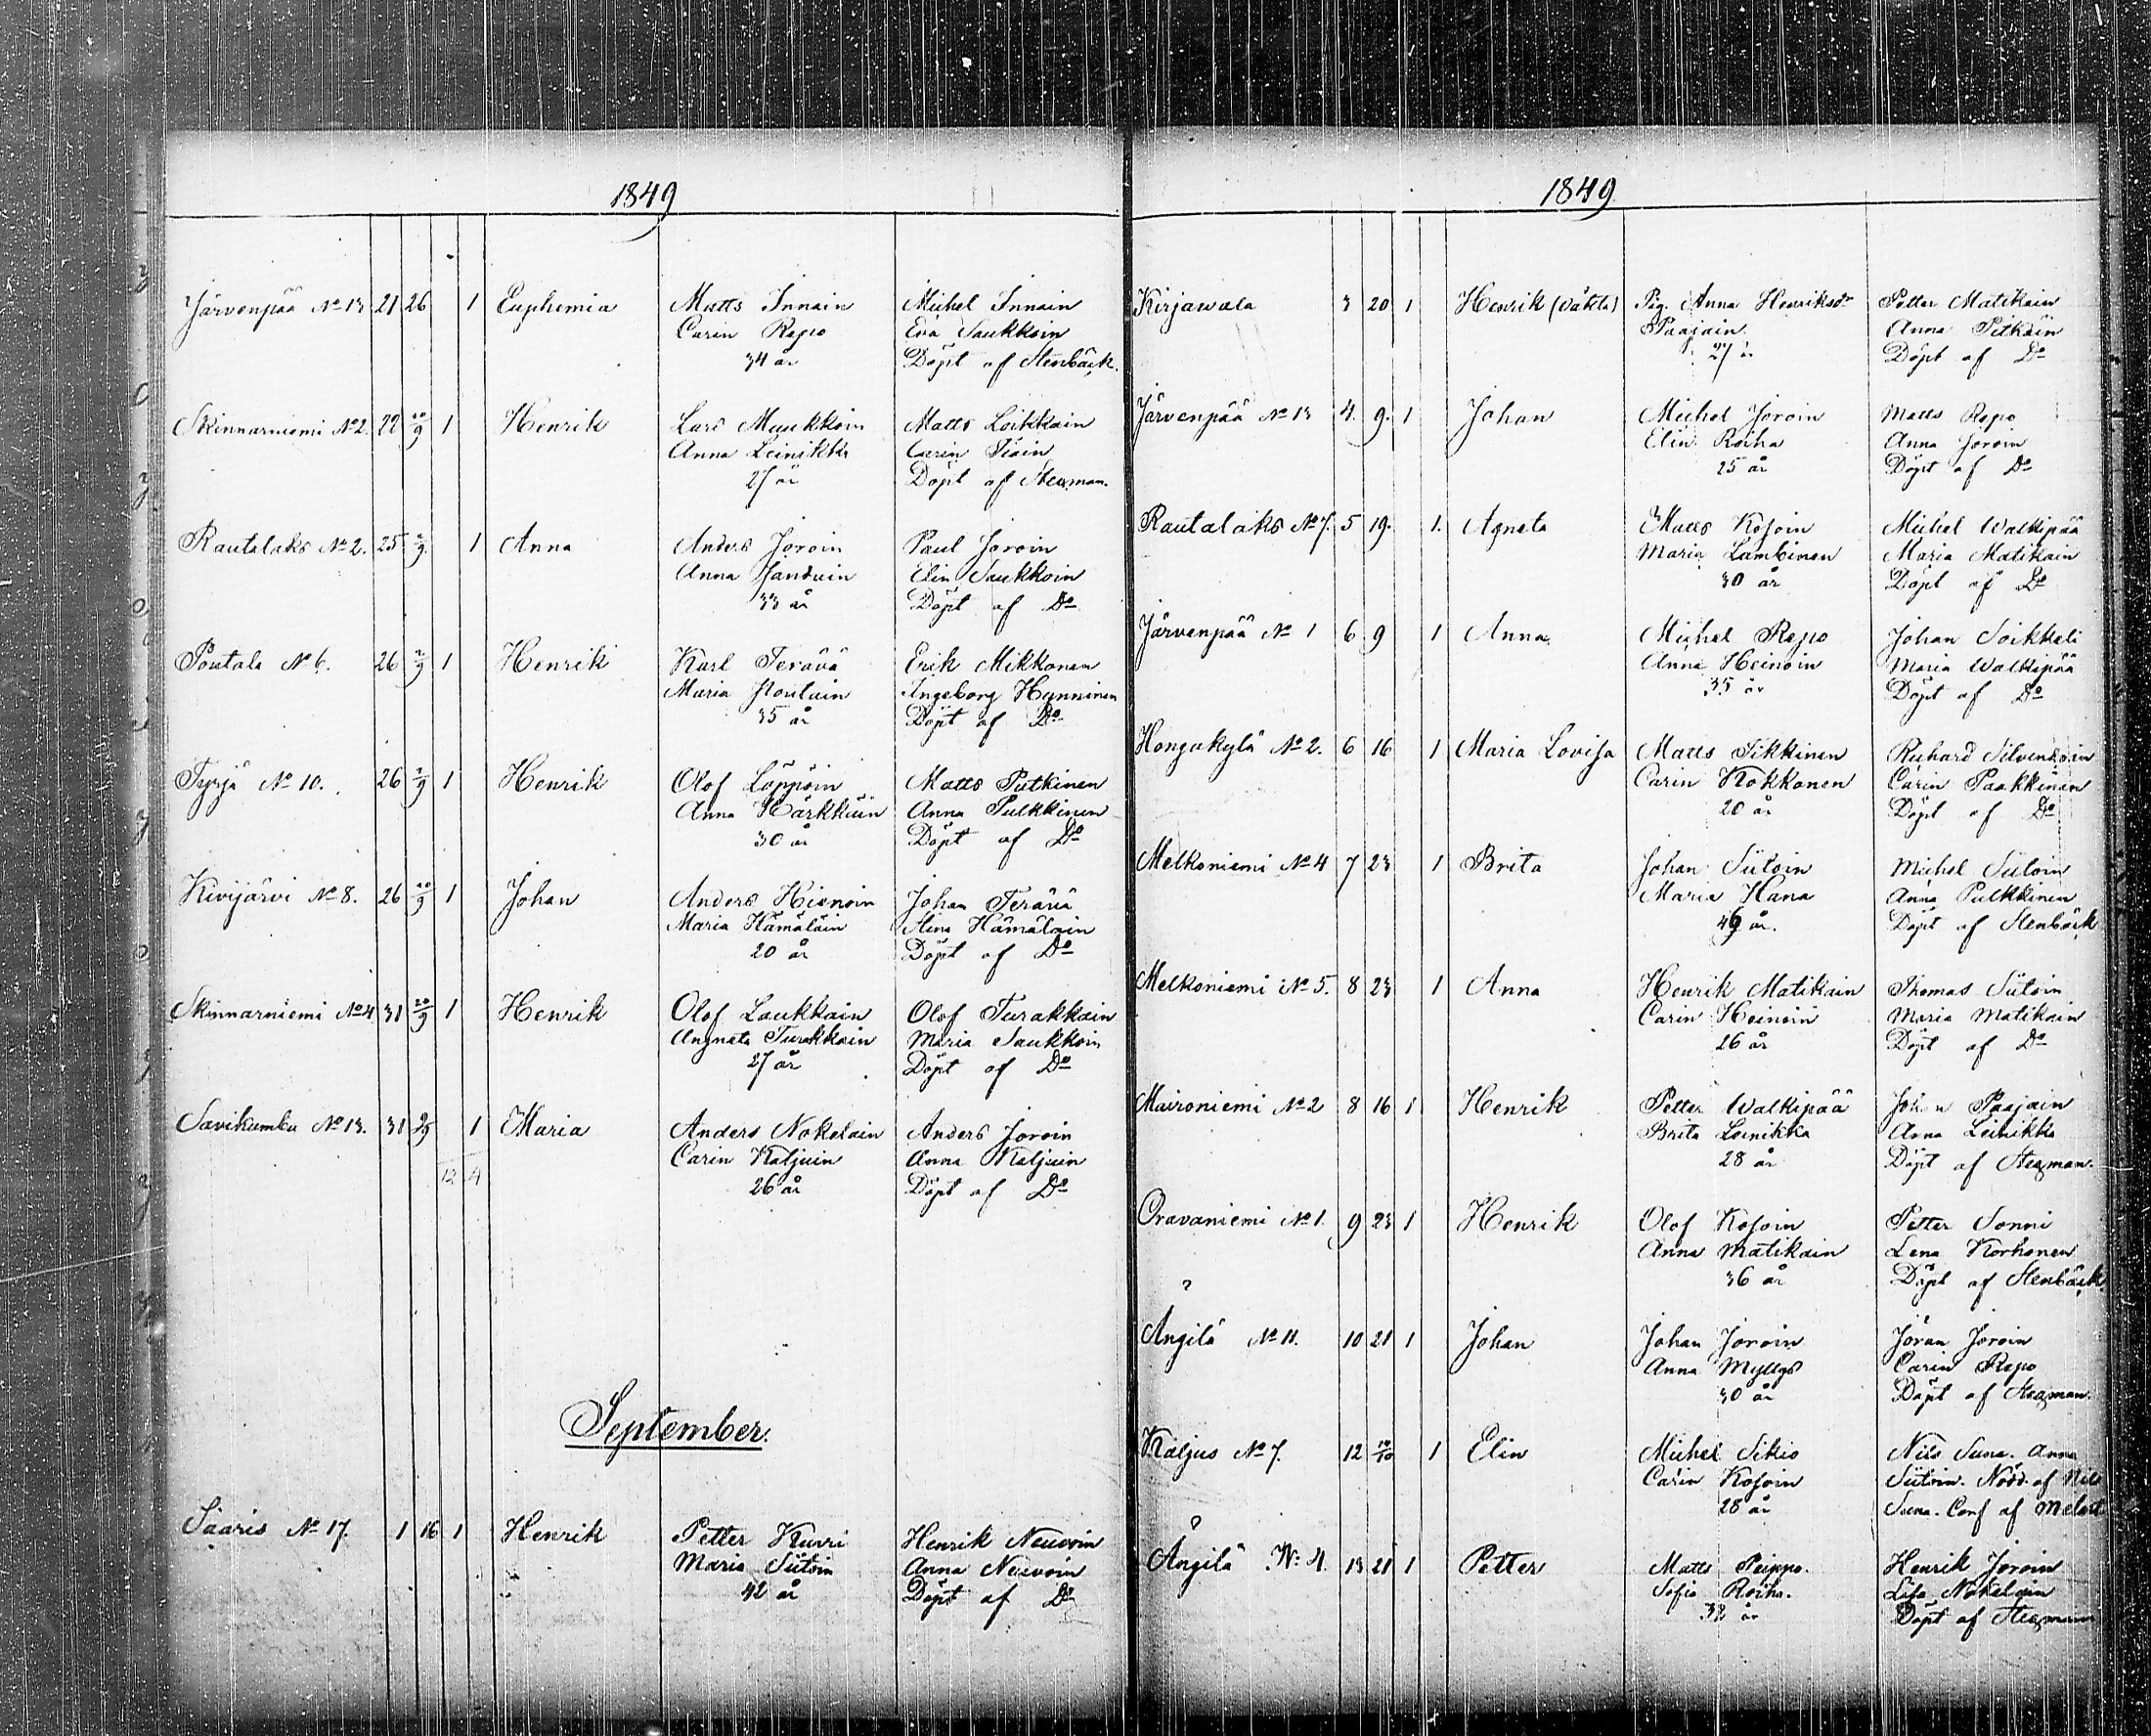 1849
Järvenpää No 13 21 26 1 Euphemia Matts Innain Michel Innain
Carin Repo Eva Saukkoin
34 år Döpt af Stenbäck.
Skinnarniemi No 2. 22 20/9 1 Henrik Lars Muukkoin Matts Loikkain
Anna Leinikka Carin Piäin
27 år Döpt af Stegman.
Rautalaks No 2. 25 2/9 1 Anna Anders Joroin Paul Joroin
Anna Janduin Elin Saukkoin
33 år Döpt af Do
Poutala No 6. 26 2/9 1 Henrik Karl Terävä Erik Mikkonen
Maria Poutain Ingeborg Hynninen
35 år Döpt af Do
Tyrjä No 10. 26 2/9 1 Henrik Olof Löppöin Matts Putkinen
Anna Härkkuin Anna Pulkkinen
30 år Döpt af Do
Kivijärvi No 8. 26 20/9 1 Johan Anders Hienoin Johan Terävä
Maria Hämäläin Stina Hämäläin
20 år Döpt af Do
Skinnarniemi No 4 31 20/9 1 Henrik Olof Laukkain Olof Turakkain
Angneta Turakkain Maria Saukkoin
27 år Döpt af Do
Savikumbu No 13. 31 2/9 1 Maria Anders Nokelain Anders Joroin
Carin Kaljuin Anna Kaljuin
12 4 26 år Döpt af Do
September.
Saaris No 17. 1 16 1 Henrik Petter Kurri Henrik Neuvoin
Maria Siitoin Anna Neuvoin
42 år Döpt af Do
1849
Kirjavala 3 20 1 Henrik (oäkta) Pig. Anna Henriksdr Petter Matikain
Paajain Anna Pitkäin
27 år Döpt af Do
Järvenpää No 13 4. 9. 1 Johan Michel Joroin Matts Repo
Elin Roiha Anna Joroin
25 år Döpt af Do
Rautalaks No 7. 5 19. 1. Agneta Matts Kosoin Michel Walkipää
Maria Lambinen Maria Matikain
30 år Döpt af Do
Järvenpää No 1 6 9 1 Anna Michel Repo Johan Soikkeli
Anna Heinoin Maria Walkipää
35 år Döpt af Do
Hongakylä No 2. 6 16 1 Maria Lovisa Matts Tikkinen Richard Silvendoin
Carin Kokkonen Carin Paakkinen
20 år Döpt af Do
Melkoniemi No 4 7 23 1 Brita Johan Siitoin Michel Siitoin
Maria Hana Anna Pulkkinen
49 år. Döpt af Stenbäck
Melkoniemi No 5. 8 23 1 Anna Henrik Matikain Thomas Siitoin
Carin Heinoin Maria Matikain
26 år Döpt af Do
Maironiemi No 2 8 16 1 Henrik Petter Walkipää Johan Paajain
Brita Leinikka Anna Leinikka
28 år Döpt af Stegman.
Oravaniemi No 1. 9 23 1 Henrik Olof Kosoin Petter Sonni
Anna Matikain Lena Korhonen
36 år Döpt af Stenbäck
Ängilä No 11. 10 21 1 Johan Johan Joroin Jöran Joroin
Anna Myllys Carin Repo
30 år Döpt af Stegman.
Kaljus No 7. 12 14/10 1 Elin Michel Sikio Nils Suna. Anna
Carin Kosoin Siitoin. Nödd. af Nils
28 år Suna. Conf af Melart
Ängilä No 4. 13 21 1 Petter Matts Peippo. Henrik Joroin
Sofia Roiha. Lisa Nokelain
32 år Döpt af Stegman